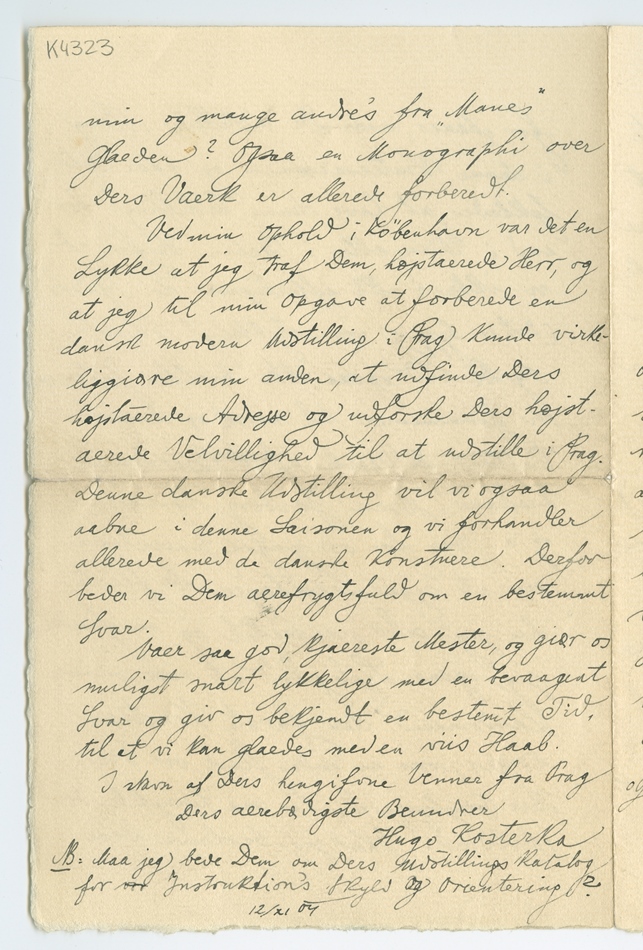 K4323
min og mange andre's fra „Manes"
Glaeden? Ogsaa en Monographi over
Ders Vaerk er allerede forberedt.
Ved min Ophold i Köbenhavn var det en
Lykke at jeg traf Dem, højstaerede Herr, og
at jeg til min Opgave at forberede en
dansk modern Udstilling i Prag kunde virke-
liggiøre min anden, at udfinde Ders
højstaerede Adresse og udforske Ders højst-
aerede Velvillighed til at udstille i Prag.
Denne danske Udstilling vil vi ogsaa
aabne i denne Saisonen og vi forhandler
allerede med de danske Konstnere. Derfor
beder vi Dem aerefrygtsfuld om en bestemmt
Svar.
Vaer saa god, kjaereste Mester, og giør os
muligst snart lykkelige med en bevaagent
Svar og giv os bekjendt en bestemt Tid,
til at vi kan glaedes med en viis Haab.
I skon af Ders hengifvne Venner fra Prag
Ders aerebødigste Beundrer
Hugo Kosterka
NB: Maa jeg bede Dem om Ders Udstillings Katalog
for Instruktion's Skyld og Orientering?
12/XI 04